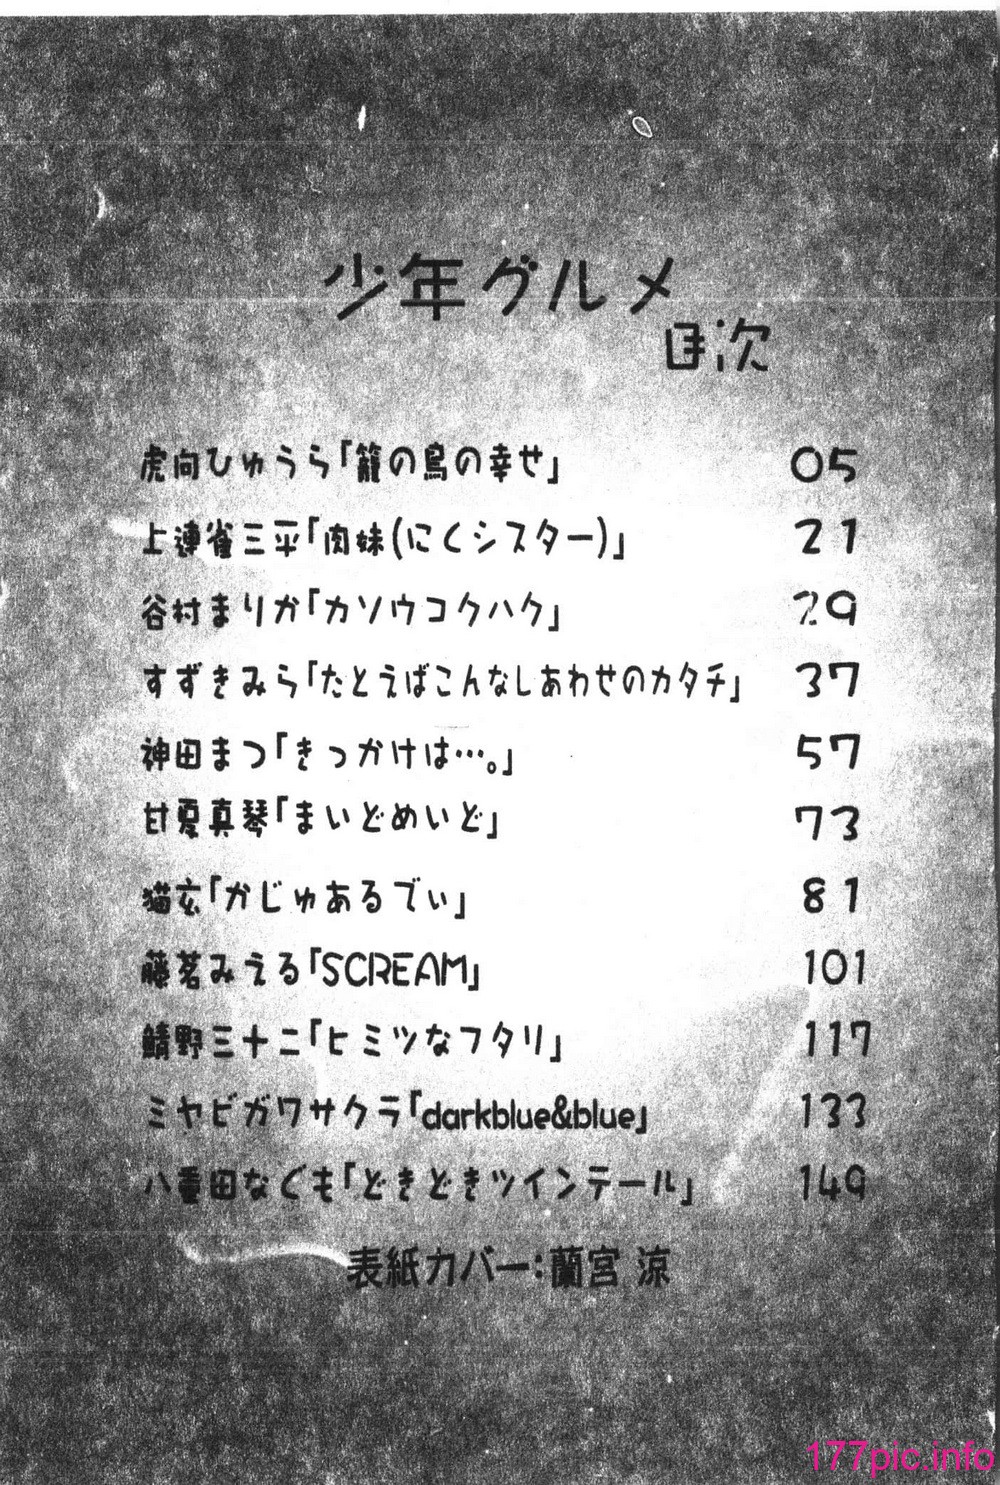 少年グルメ
目次
虎向ひゅうら「籠の鳥の幸せ」 05
上連雀三平「肉妹(にくシスター)」 21
谷村まりか「カソウコクハク」 29
すずきみら「たとえばこんなしあわせのカタチ」 37
神田まつ「きっかけは…。」 57
甘夏真琴「まいどめいど」 73
猫玄「かじゅあるでぃ」 81
藤茗みえる「SCREAM」 101
鯖野三十二「ヒミツなフタリ」 117
ミヤビガワサクラ「darkblue&blue」 133
八重田なぐも「どきどきツインテール」 149
表紙カバー:蘭宮 涼
177pic.info